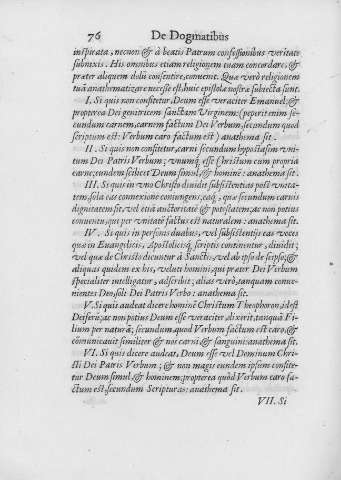 76 De Dogmatibus
inspirata, necnon & à beatis Patrum confessionibus veritate
subnixis. His omnibus etiam religionem tuam concordare, &
præter aliquem dolū consentire, convenit. Quæ verò religionem
tuā anathematizare necesse est, huic epistolæ nostræ subiecta sunt.
I. Si quis non confitetur, Deum esse veraciter Emanuel; &
propterea Dei genitricem sanctam Virginem; (peperit enim se-
cundum carnem, carnem factum Dei Verbum, secundum quod
scriptum est: Verbum caro factum est) anathema sit.
II. Si quis non confitetur, carni secundum hypostasim vni-
tum Dei Patris Verbum; vnumq́; esse Christum cum propria
carne; eundem scilicet Deum simul, & hominē: anathema sit.
III. Si quis in vno Christo dividit subsistentias post vnita-
tem, sola eas connexione coniungens, eaq́; quæ secundum carnis
dignitatem sit, vel etiā auctoritatē & potestatem; ac non potius
conventu, qui per vnitatē factus est naturalem: anathema sit.
IV. Si quis in personis duabus, vel subsistentijs eas voces
quæ in Euangelicis, Apostolicisq́; scriptis continentur, dividit;
vel quæ de Christo dicuntur à Sanctis, vel ab ipso de seipso; &
aliquas quidem ex his, veluti homini, qui præter Dei Verbum
specialiter intelligatur, adscribit; alias virò, tanquam conve-
nientes Deo, soli Dei Patris Verbo: anathema sit.
V. Si quis audeat dicere hominē Christum Theophoron, id est
Deiferū; ac non potius Deum esse veraciter, dixerit, tanquā Fi-
lium per naturā; secundum, quod Verbum factum est caro, &
cōmunicavit similiter & nos carni & sanguini: anathema sit.
VI. Si quis dicere audeat, Deum esse vel Dominum Chri-
sti Dei Patris Verbum; & non magis eundem ipsum confite-
tur Deum simul, & hominem; propterea quòd Verbum caro fa-
ctum est, secundum Scripturas: anathema sit.
VII. Si